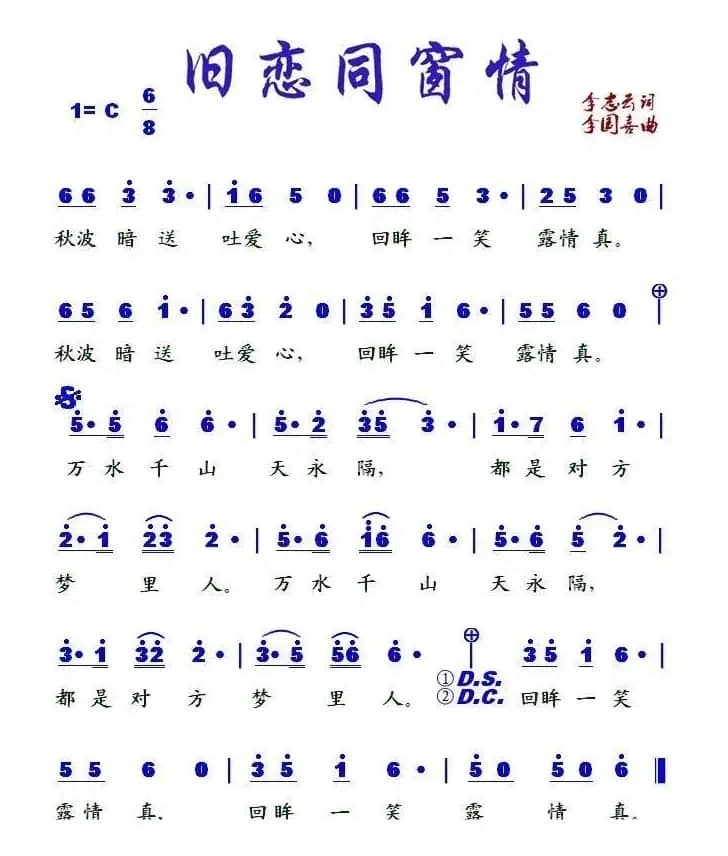 旧恋同窗情
1= C 6/8
李志云词
李国喜曲
66 3̇ 3̇· | 1̇6 5 0 | 66 5 3· | 25 3 0 |
秋波 暗 送 吐爱 心, 回眸 一 笑 露情 真。
65 6 1̇· | 63̇ 2̇ 0 | 3̇5̇ 1̇ 6· | 55 6 0 |
秋波 暗 送 吐爱 心, 回眸 一 笑 露情 真。
5̇· 5̇ 6̇ 6̇· | 5̇· 2̇ 3̇5̇ 3̇· | 1̇· 7 6 1̇· |
万 水 千 山 天 永 隔, 都 是 对 方
2̇· 1̇ 2̇3̇ 2̇· | 5̇· 6̇ 1̇6̇ 6̇· | 5̇· 6̇ 5̇ 2̇· |
梦 里 人。 万 水 千 山 天 永 隔,
3̇· 1̇ 3̇2̇ 2̇· | 3̇· 5̇ 5̇6̇ 6̇· | 3̇5̇ 1̇ 6· |
①D.S.
②D.C.
都 是 对 方 梦 里 人。 回眸 一 笑
55 6 0 | 3̇5̇ 1̇ 6· | 5̇0 5̇0 6̇
露情 真, 回眸 一 笑 露 情 真。